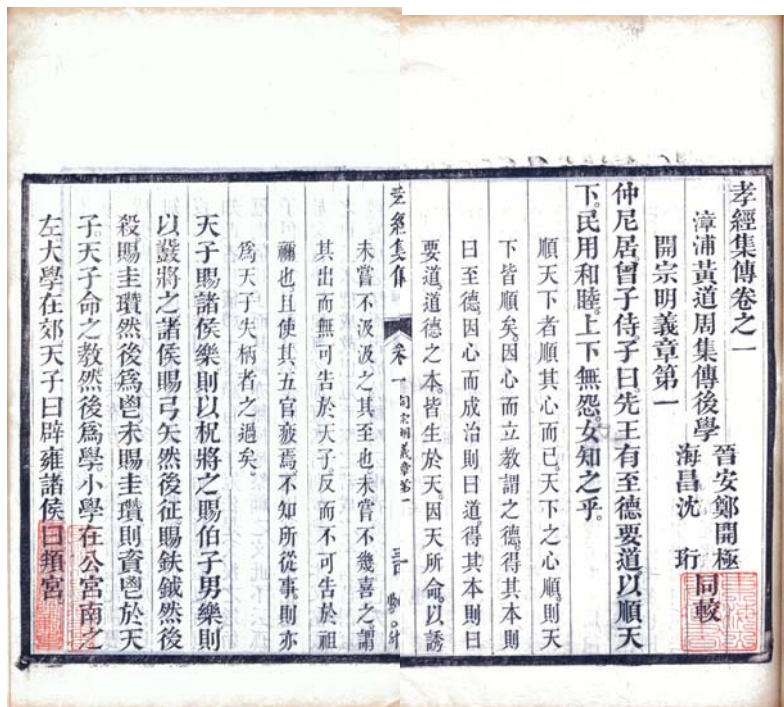 孝經集傳卷之一
漳浦黃道周集傳後學
晉安鄭開極
海昌沈珩
同較
開宗明義章第一
仲尼居曾子侍子曰先王有至德要道以順天
下民用和睦上下無怨女知之乎
順天下者順其心而已天下之心順則天
下皆順矣因心而立教謂之德得其本則
曰至德因心而成治則曰道得其本則曰
要道道德之本皆生於天因天所命以誘
孝經集傳 卷一 開宗明義章第一
未嘗不汲汲之其至也未嘗不幾喜之謂
其出而無可告於天子反而不可告於祖
禰也且使其五官疲焉不知所從事則亦
為天子失柄者之過矣
天子賜諸侯樂則以柷將之賜伯子男樂則
以鼗將之諸侯賜弓矢然後征賜鈇鉞然後
殺賜圭瓚然後為鬯未賜圭瓚則資鬯於天
子天子命之教然後為學小學在公宮南之
左大學在郊天子曰辟雍諸侯曰頖宮